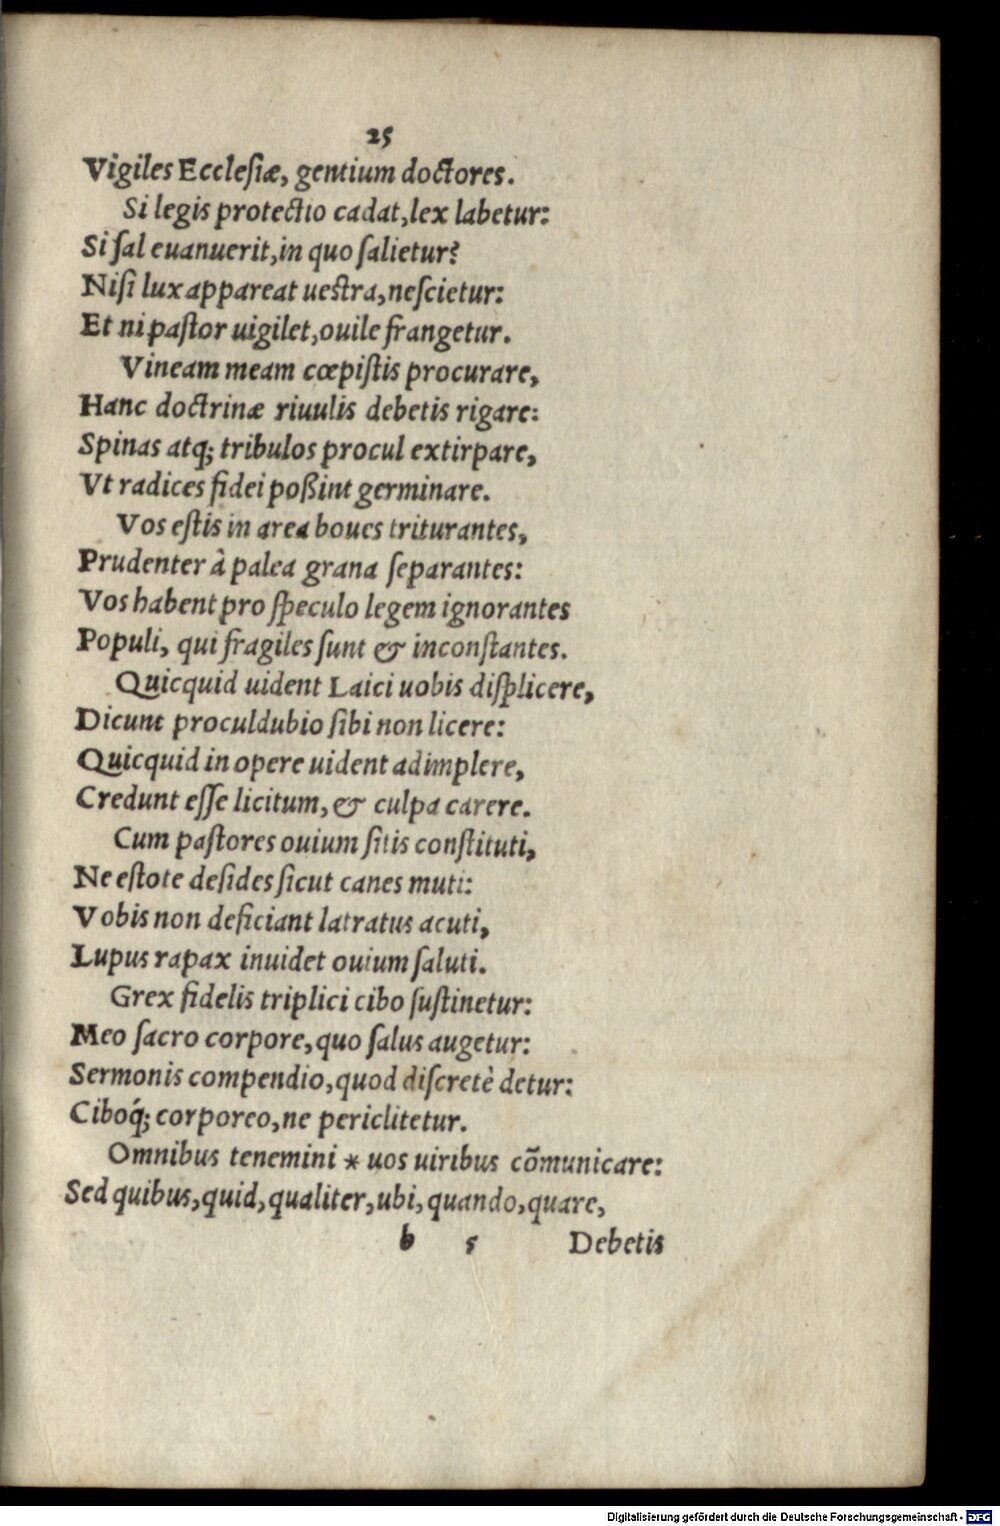 25
Vigiles Ecclesiæ, gentium doctores.
Si legis protectio cadat, lex labetur:
Si sal euanuerit, in quo salietur?
Nisi lux appareat uestra, nescietur:
Et ni pastor uigilet, ouile frangetur.
Vineam meam cœpistis procurare,
Hanc doctrinæ riuulis debetis rigare:
Spinas atq; tribulos procul extirpare,
Vt radices fidei poßint germinare.
Vos estis in area boues triturantes,
Prudenter à palea grana separantes:
Vos habent pro speculo legem ignorantes
Populi, qui fragiles sunt & inconstantes.
Quicquid uident Laici uobis displicere,
Dicunt proculdubio sibi non licere:
Quicquid in opere uident adimplere,
Credunt esse licitum, & culpa carere.
Cum pastores ouium sitis constituti,
Ne estote desides sicut canes muti:
Vobis non deficiant latratus acuti,
Lupus rapax inuidet ouium saluti.
Grex fidelis triplici cibo sustinetur:
Meo sacro corpore, quo salus augetur:
Sermonis compendio, quod discretè detur:
Ciboq́; corporeo, ne periclitetur.
Omnibus tenemini * uos uiribus cõmunicare:
Sed quibus, quid, qualiter, ubi, quando, quare,
b 5 Debetis
Digitalisierung gefördert durch die Deutsche Forschungsgemeinschaft - DFG